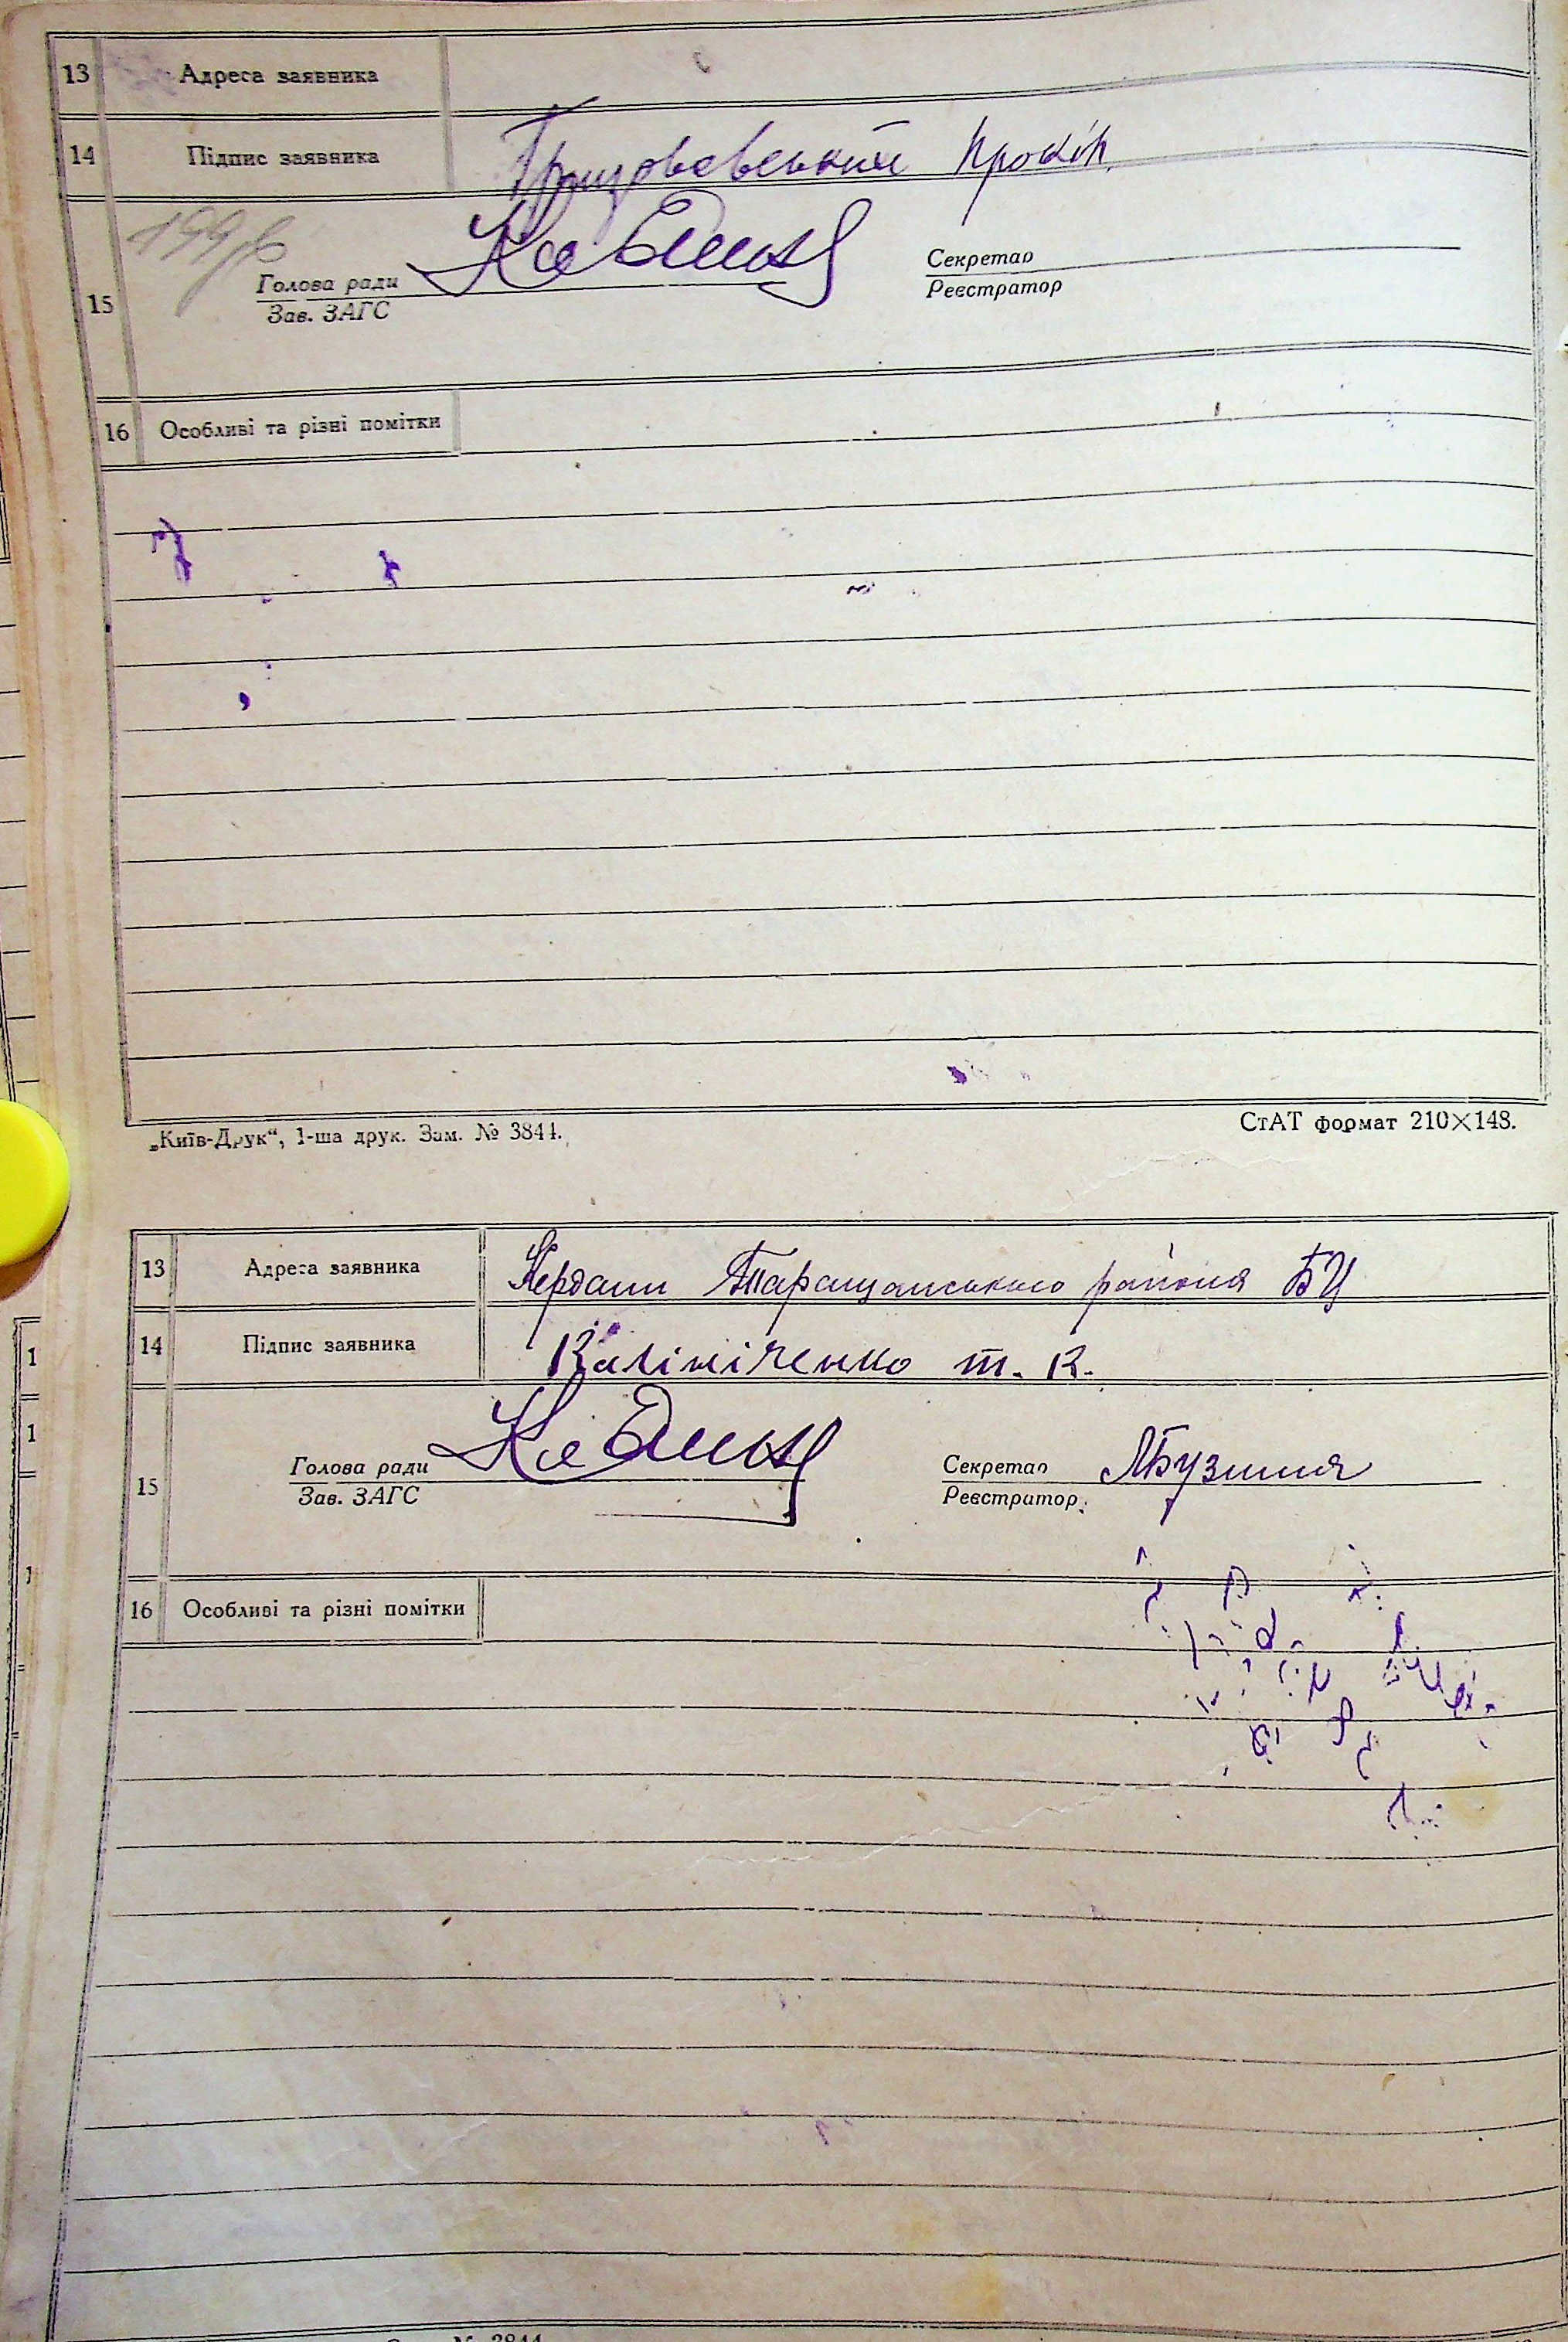 13 Адреса заявника
14 Підпис заявника Прокіп
15 Голова ради Секретар
Зав. ЗАГС Реєстратор
16 Особливі та різні помітки
„Київ-Друк“, 1-ша друк. Зам. № 3844.
СтАТ формат 210×148.
13 Адреса заявника Кердани Таращанського района БЦ
14 Підпис заявника Калініченко т. К.
15 Голова ради Секретар
Зав. ЗАГС Реєстратор
16 Особливі та різні помітки